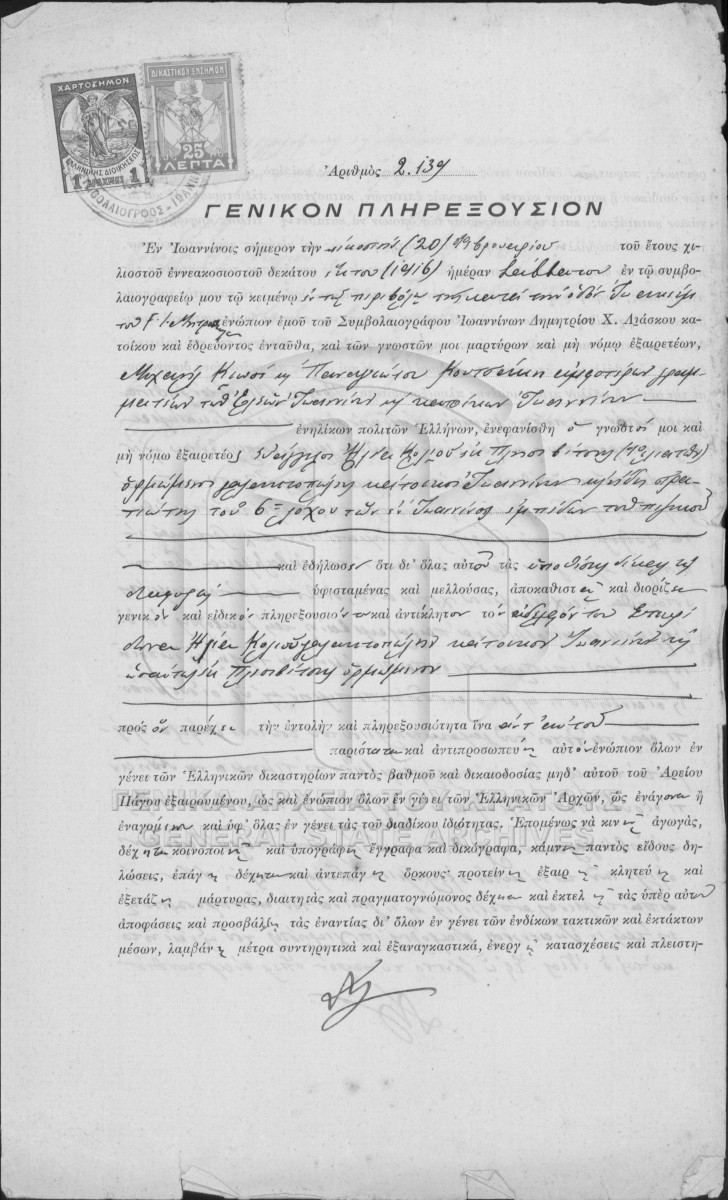 ΧΑΡΤΟΣΗΜΟΝ
ΕΛΛΗΝΙΚΗΣ ΔΙΟΙΚΗΣΕΩΣ
1 ΔΡΑΧΜΗΣ 1
ΔΙΚΑΣΤΙΚΟΝ ΕΝΣΗΜΟΝ
25
ΛΕΠΤΑ
Ἀριθμὸς 2.139
ΓΕΝΙΚΟΝ ΠΛΗΡΕΞΟΥΣΙΟΝ
Ἐν Ἰωαννίνοις σήμερον τὴν εἰκοστὴν (20) Φεβρουαρίου τοῦ ἔτους χι-
λιοστοῦ ἐννεακοσιοστοῦ δεκάτου ἕκτου (1916) ἡμέραν Σάββατον ἐν τῷ συμβο-
λαιογραφείῳ μου τῷ κειμένῳ κατὰ τὴν ὁδὸν
τοῦ ἐνώπιον ἐμοῦ τοῦ Συμβολαιογράφου Ἰωαννίνων Δημητρίου Χ. Λάσκου κα-
τοίκου καὶ ἑδρεύοντος ἐνταῦθα, καὶ τῶν γνωστῶν μοι μαρτύρων καὶ μὴ νόμῳ ἐξαιρετέων,
Μιχαὴλ Παναγιώτου ἀμφοτέρων
Ἰωαννίνων κατοίκων Ἰωαννίνων
ἐνηλίκων πολιτῶν Ἑλλήνων, ἐνεφανίσθη ὁ γνωστός μοι καὶ
μὴ νόμῳ ἐξαιρετέος Εὐάγγελος Ἠλία
ὁρμώμενος γαλακτοπώλης κάτοικος Ἰωαννίνων ἤδη στρα-
τιώτης τοῦ 6 λόχου τῶν ἐν Ἰωαννίνοις ἐμπέδων τοῦ πεζικοῦ
καὶ ἐδήλωσεν ὅτι δι' ὅλας αὐτοῦ τὰς ὑποθέσεις δίκας
διαφορὰς ὑφισταμένας καὶ μελλούσας, ἀποκαθιστᾷ καὶ διορίζει
γενικὸν καὶ εἰδικὸν πληρεξούσιόν του καὶ ἀντίκλητον τὸν ἀδελφόν του Σπυρί-
δωνα Ἠλία γαλακτοπώλην κάτοικον Ἰωαννίνων
ὁρμώμενον
πρὸς ὃν παρέχει τὴν ἐντολὴν καὶ πληρεξουσιότητα ἵνα ἀντ' αὐτοῦ
παρίσταται καὶ ἀντιπροσωπεύῃ αὐτὸν ἐνώπιον ὅλων ἐν
γένει τῶν Ἑλληνικῶν δικαστηρίων παντὸς βαθμοῦ καὶ δικαιοδοσίας μηδ' αὐτοῦ τοῦ Ἀρείου
Πάγου ἐξαιρουμένου, ὡς καὶ ἐνώπιον ὅλων ἐν γένει τῶν Ἑλληνικῶν Ἀρχῶν, ὡς ἐνάγοντα ἢ
ἐναγόμενον καὶ ὑφ' ὅλας ἐν γένει τὰς τοῦ διαδίκου ἰδιότητας. Ἑπομένως νὰ κινῇ ἀγωγάς,
δέχηται κοινοποιῇ καὶ ὑπογράφῃ ἔγγραφα καὶ δικόγραφα, κάμνῃ παντὸς εἴδους δη-
λώσεις, ἐπάγῃ δέχηται καὶ ἀντεπάγῃ ὅρκους· προτείνῃ ἐξαιρῇ κλητεύῃ καὶ
ἐξετάζῃ μάρτυρας, διαιτητὰς καὶ πραγματογνώμονος δέχηται καὶ ἐκτελῇ τὰς ὑπὲρ αὐτοῦ
ἀποφάσεις καὶ προσβάλῃ τὰς ἐναντίας δι' ὅλων ἐν γένει τῶν ἐνδίκων τακτικῶν καὶ ἐκτάκτων
μέσων, λαμβάνῃ μέτρα συντηρητικὰ καὶ ἐξαναγκαστικά, ἐνεργῇ κατασχέσεις καὶ πλειστη-
ΓΕΝΙΚΑ ΑΡΧΕΙΑ ΤΟΥ ΚΡΑΤΟΥΣ
GENERAL STATE ARCHIVES